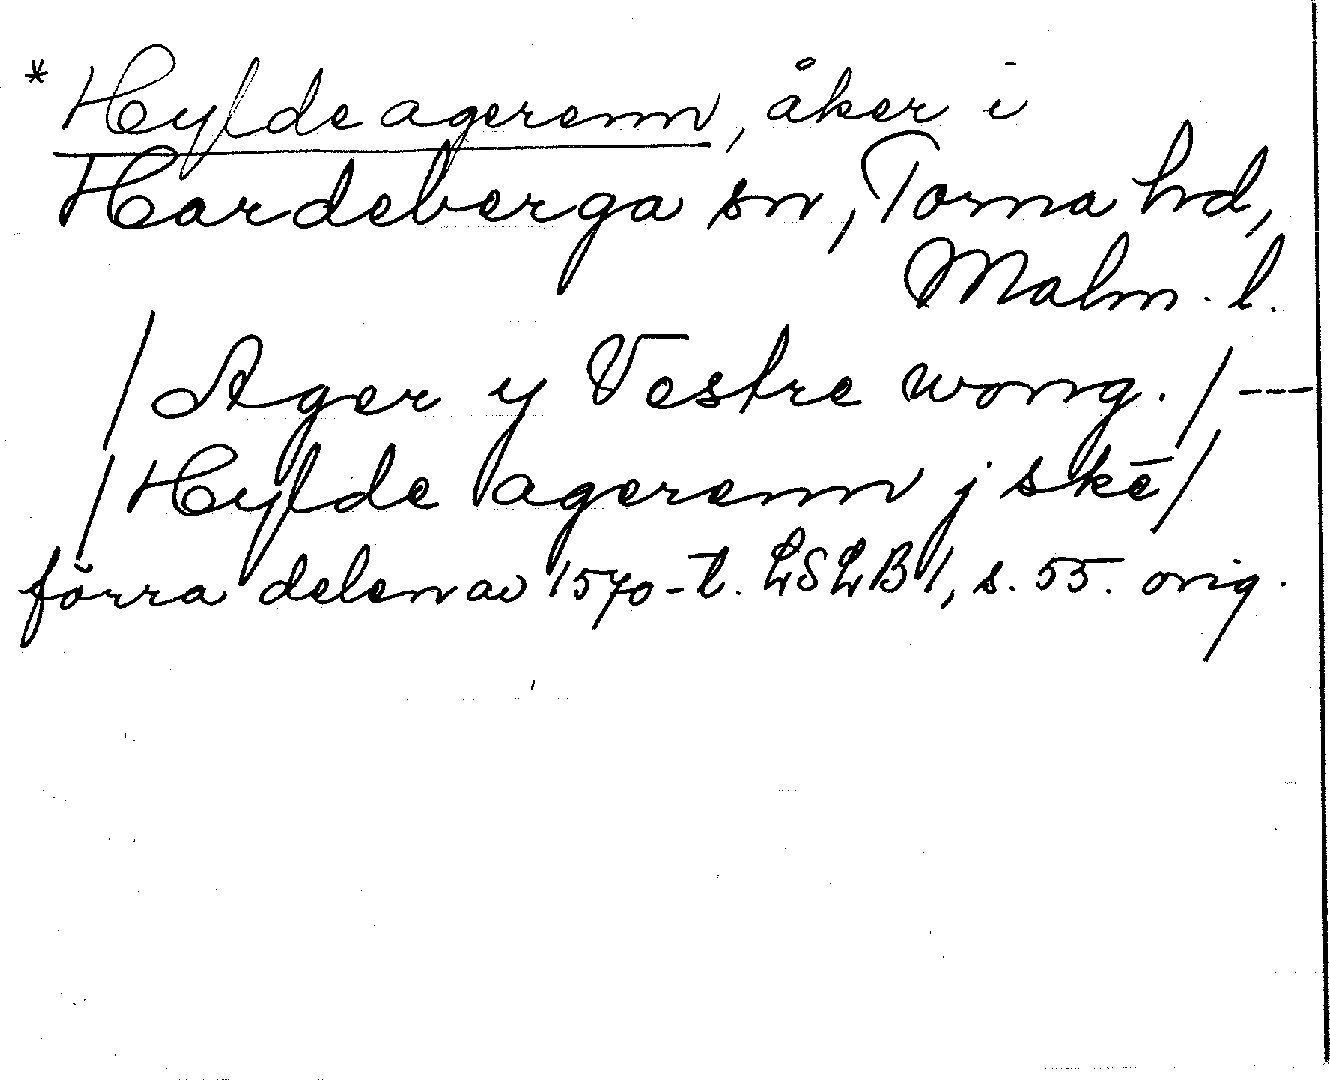 * Hylde agerenn, åker i
Hardeberga sn, Torna hd,
Malm. l.
/ Ager y Vestre wong. / ---
/ Hylde agerenn j skē /
förra delen av 1570-t. LSLB 1, s. 55. orig.